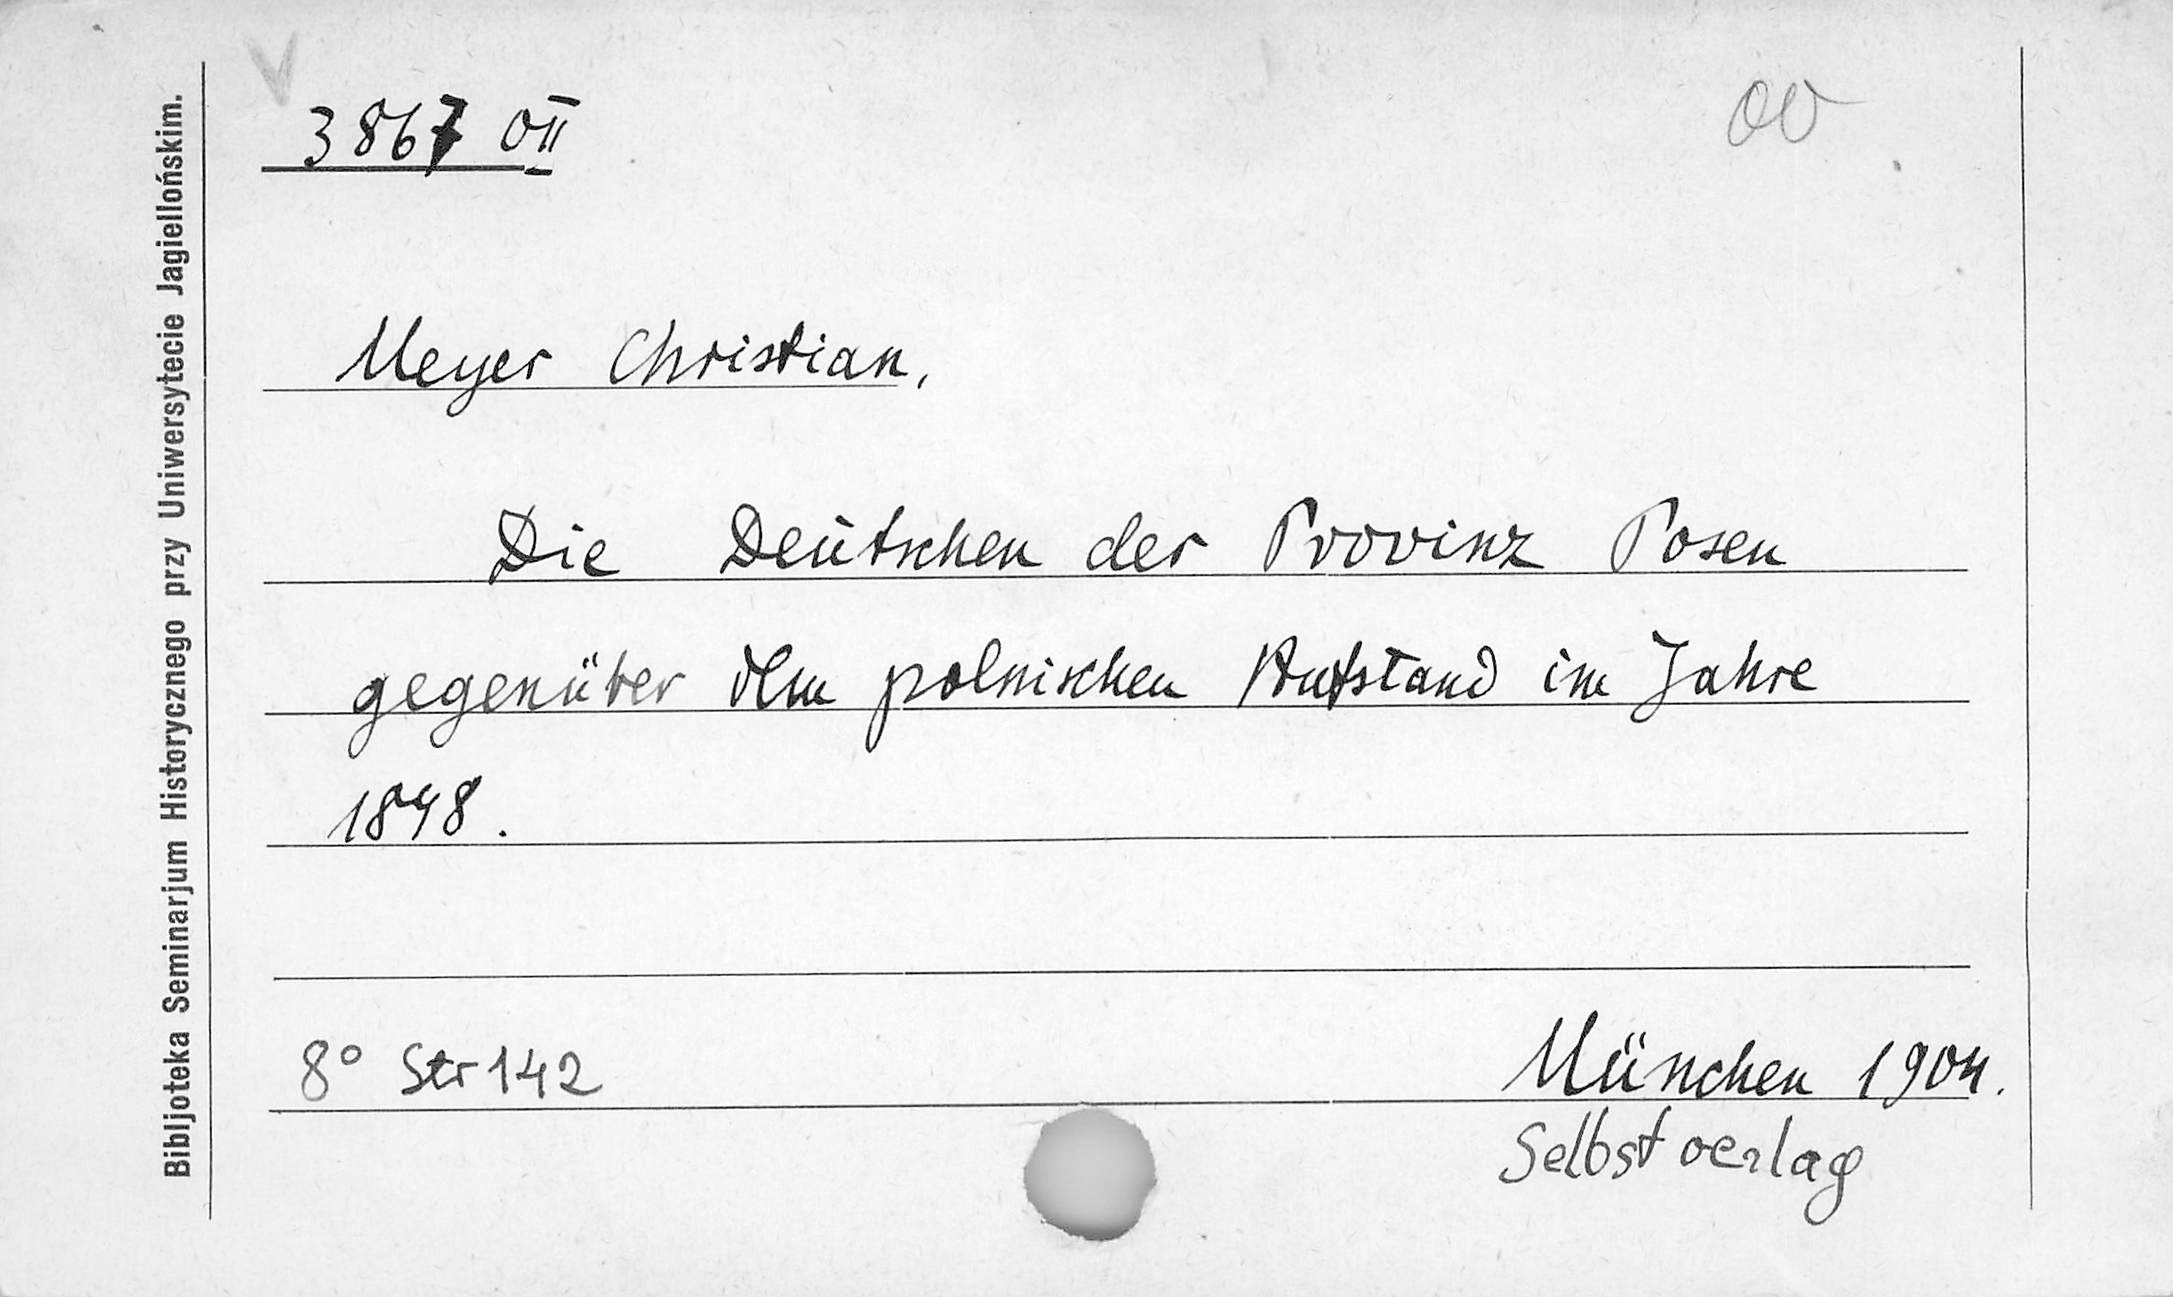 V
3867 OII
OV
Meyer Christian,
Die Deutschen der Provinz Posen
gegenüber dem polnischen Aufstand im Jahre
1848.
8° Str 142
München 1904.
Selbstverlag
Bibljoteka Seminarjum Historycznego przy Uniwersytecie Jagiellońskim.